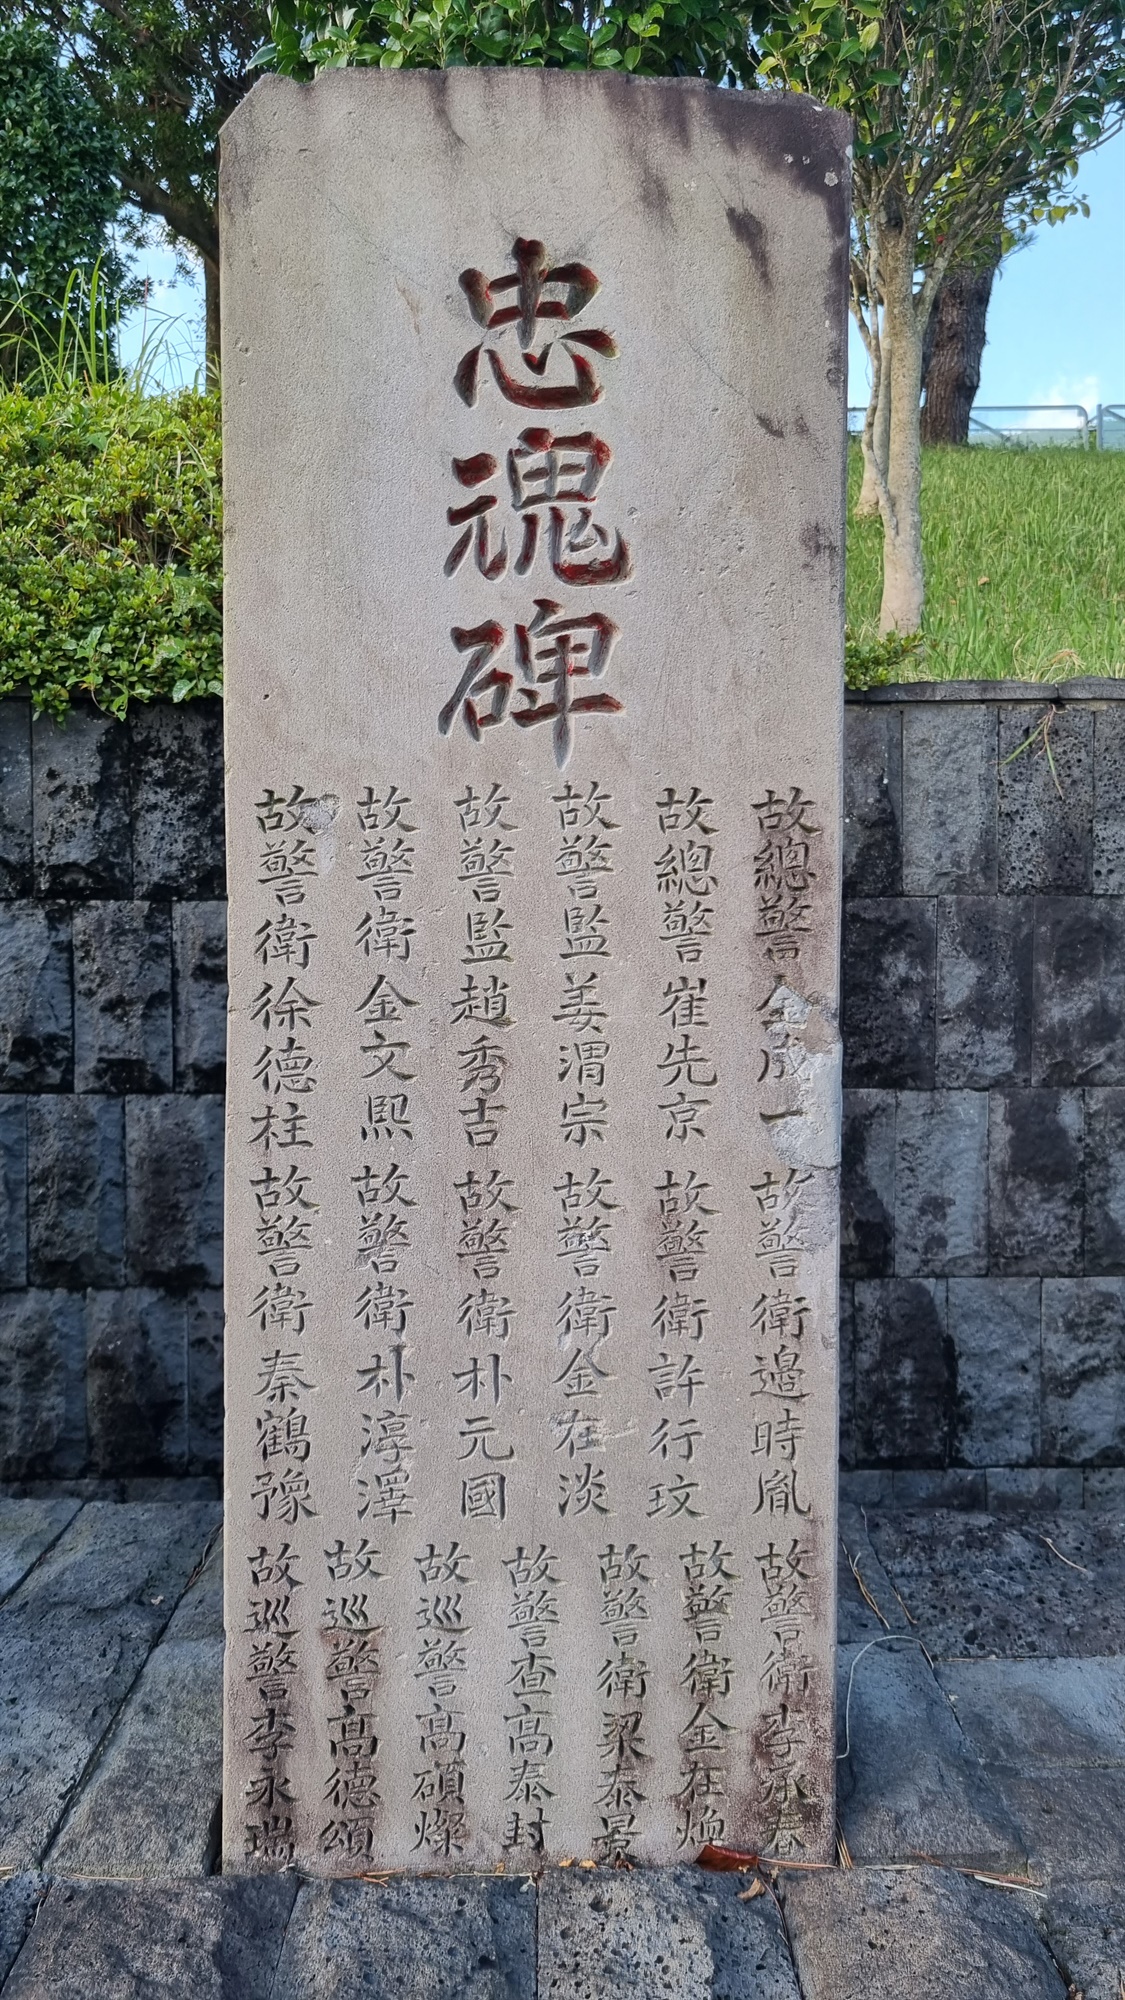 忠魂碑
故總警金成一
故總警崔先京
故警監姜渭宗
故警監趙秀吉
故警衛金文熙
故警衛徐德柱
故警衛邉時胤
故警衛許行玟
故警衛金在淡
故警衛朴元國
故警衛朴淳澤
故警衛秦鶴豫
故警衛李承春
故警衛金在煥
故警衛梁泰景
故警査高泰封
故巡警高碩燦
故巡警高德頌
故巡警李永瑞